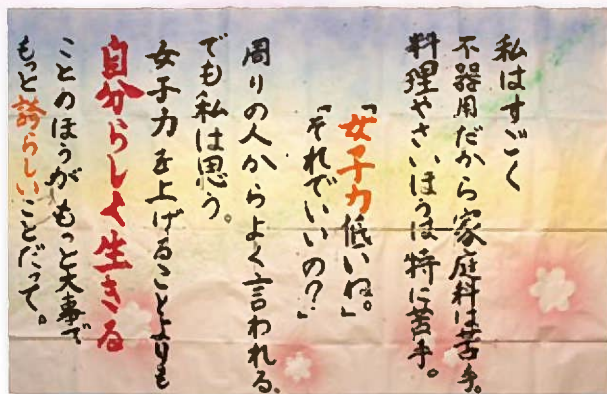 私はすごく
不器用だから家庭科は苦手。
料理やさいほうは特に苦手。
「女子力低いね。」
「それでいいの？」
周りの人からよく言われる。
でも私は思う。
女子力を上げることよりも
自分らしく生きる
ことのほうがもっと大事で
もっと誇らしいことだって。